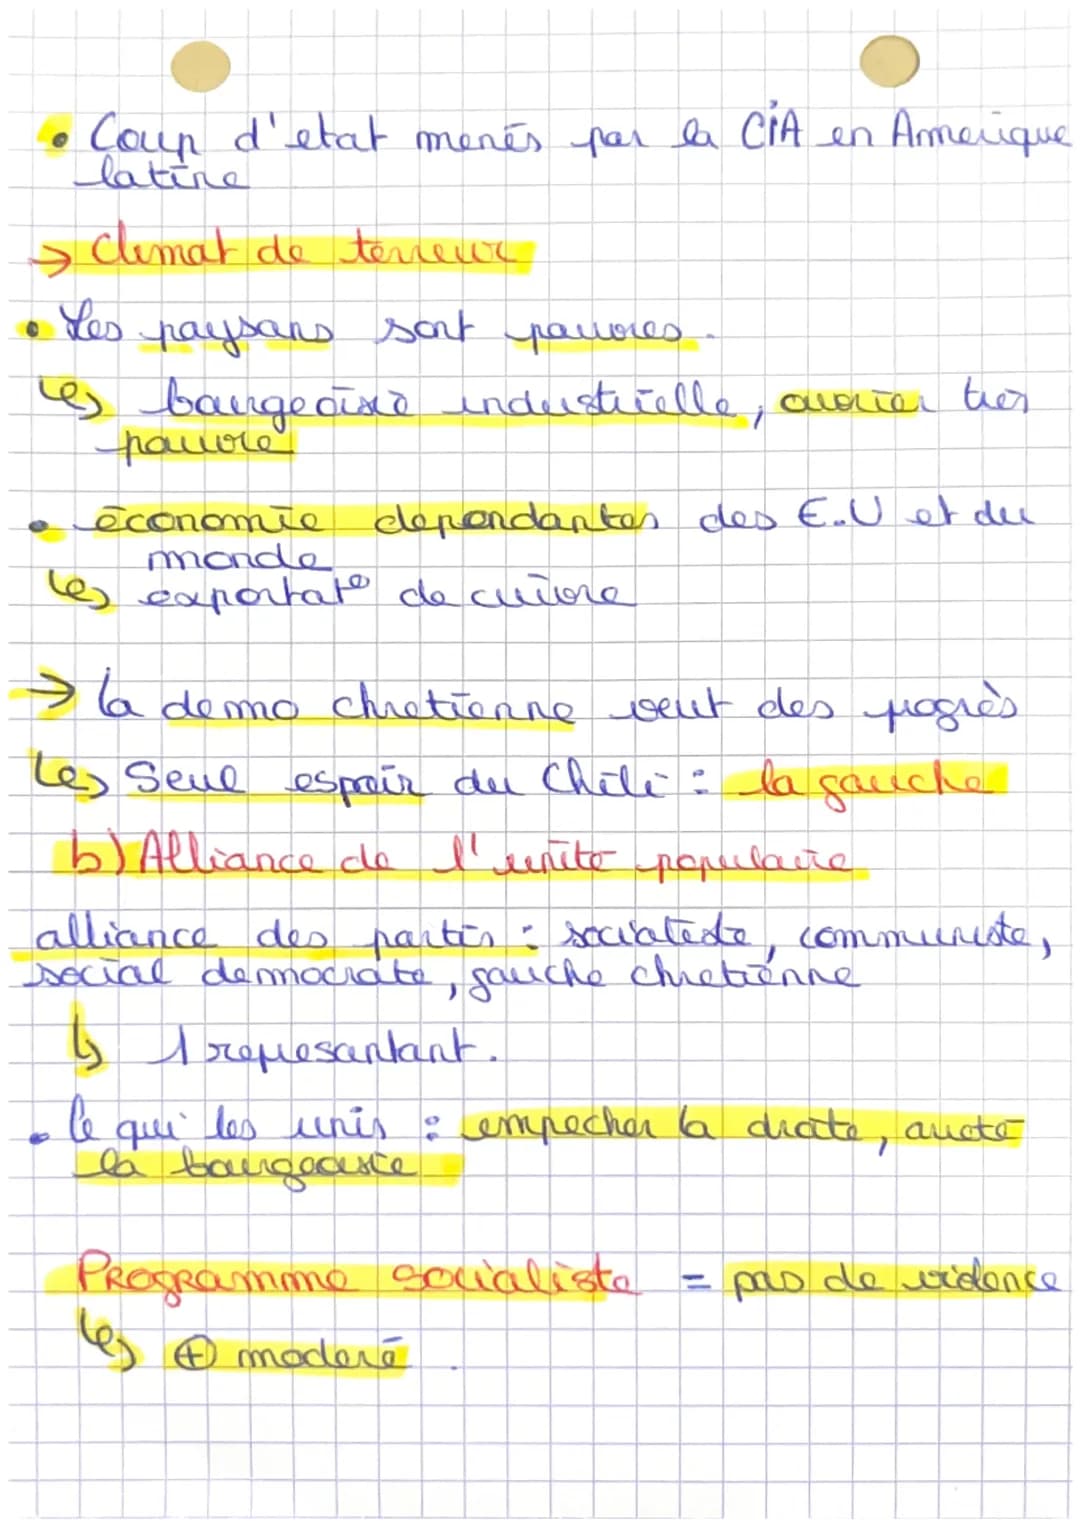 • Coup d'etat menés par la CIA en Amerique
latine
→ Climat de terreur
• Les paysans sont pauvres.
↳ bourgeoisie industrielle, ouvrier très
pauvre
• économie dependantes des E.U et du
monde
↳ exportat° de cuivre
→ la demo chretienne veut des progrès
↳ Seul espoir du Chili : la gauche
b) Alliance de l'unité populaire
alliance des partis : socialiste, communiste,
social democrate, gauche chretiénne
↳ 1 represantant.
• Ce qui les unis : empecher la droite,
la bourgeoisie
Programme socialiste = pas de violence
↳ ⊕ moderé.